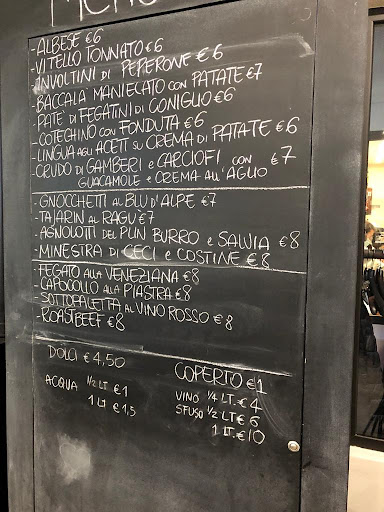 MENÙ
-ALBESE €6
-VITELLO TONNATO €6
-INVOLTINI DI PEPERONE €6
-BACCALA' MANTECATO CON PATATE €7
-PATE' DI FEGATINI DI CONIGLIO €6
-COTECHINO CON FONDUTA €6
-LINGUA AGLI ACETI SU CREMA DI PATATE €6
-CRUDO DI GAMBERI e CARCIOFI CON €7
GUACAMOLE e CREMA ALL'AGLIO
-GNOCCHETTI AL BLU D'ALPE €7
-TAJARIN AL RAGU' €7
-AGNOLOTTI DEL PLIN BURRO e SALVIA €8
-MINESTRA DI CECI e COSTINE €8
-FEGATO ALLA VENEZIANA €8
-CAPOCOLLO ALLA PIASTRA €8
-SOTTOPALETTA AL VINO ROSSO €8
-ROASTBEEF €8
DOLCI €4,50
COPERTO €1
ACQUA 1/2 LT €1
1 LT €1,5
VINO 1/4 LT. €4
SFUSO 1/2 LT € 6
1 LT. €10